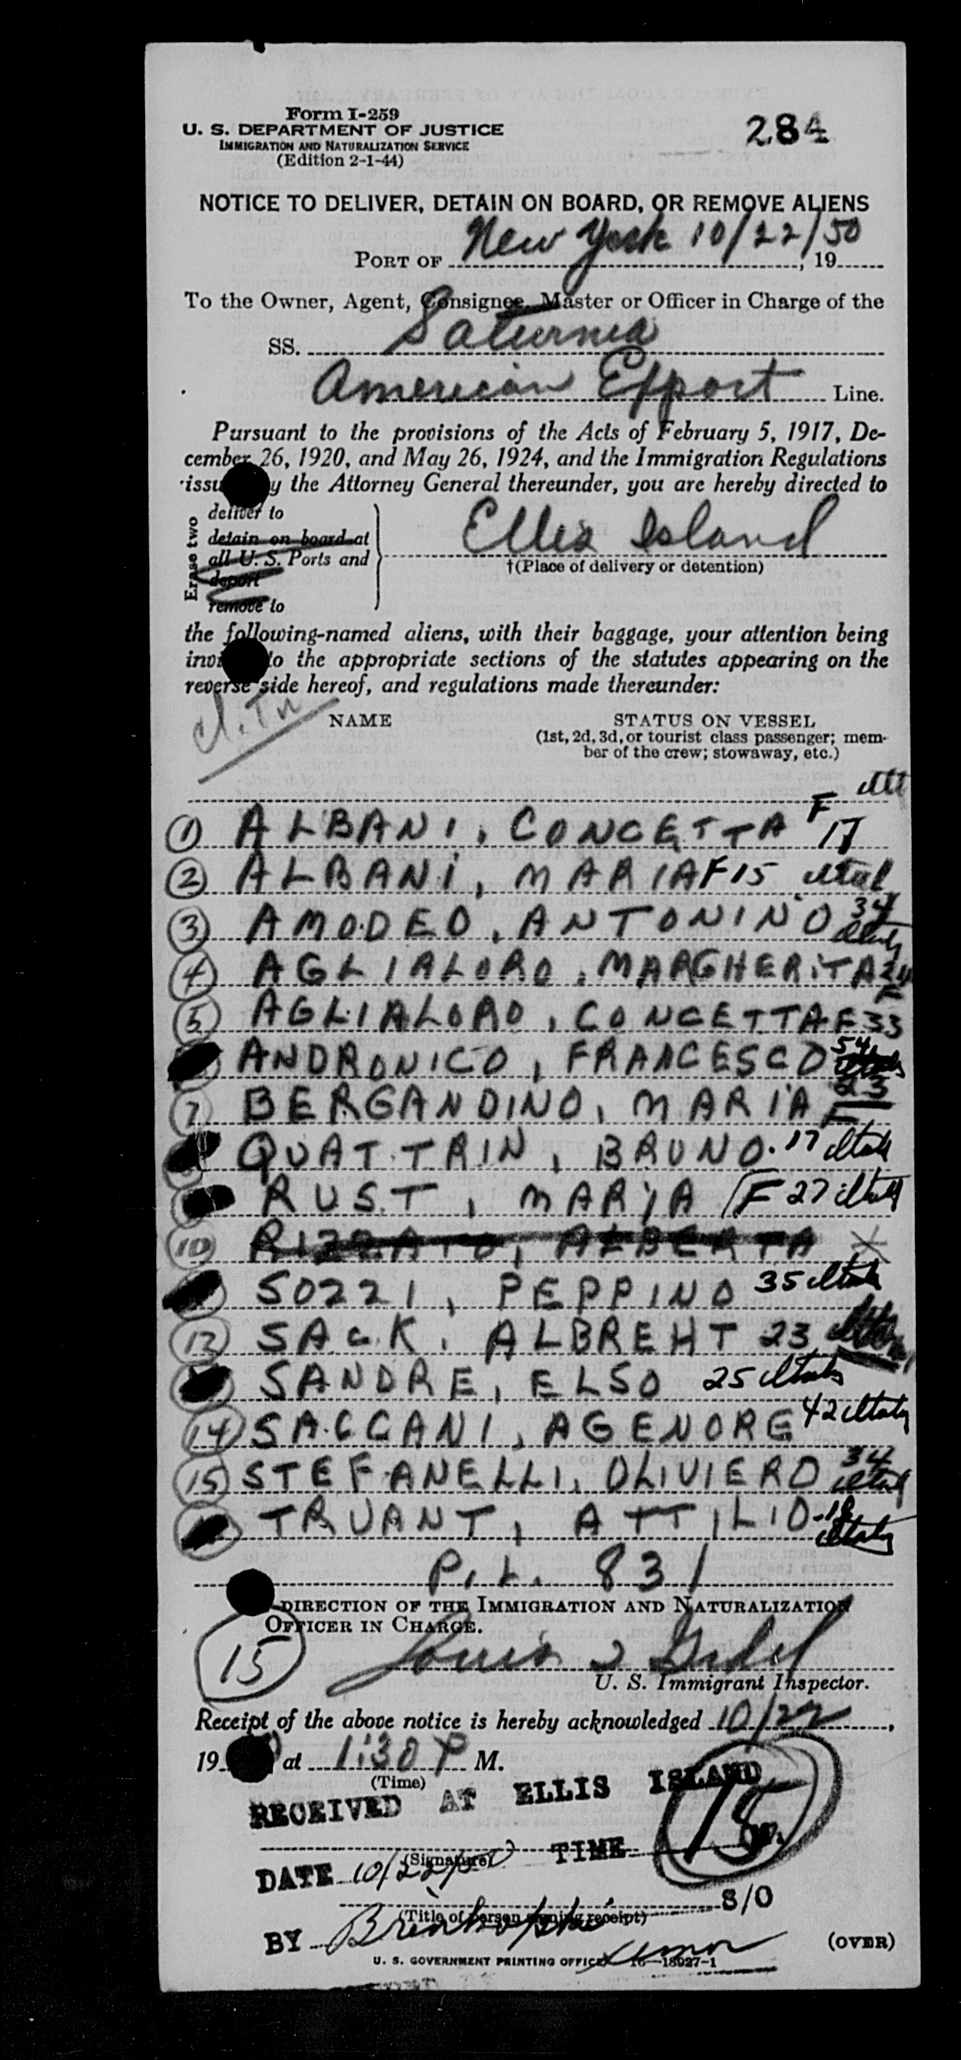 Form I-259
U. S. DEPARTMENT OF JUSTICE
IMMIGRATION AND NATURALIZATION SERVICE
(Edition 2-1-44)
284
NOTICE TO DELIVER, DETAIN ON BOARD, OR REMOVE ALIENS
PORT OF New York 10/22/50, 19
To the Owner, Agent, Consignee, Master or Officer in Charge of the
SS. Saturnia
American Export Line.
Pursuant to the provisions of the Acts of February 5, 1917, De-
cember 26, 1920, and May 26, 1924, and the Immigration Regulations
issu y the Attorney General thereunder, you are hereby directed to
Erase two
deliver to
detain on board at
all U. S. Ports and
deport
remove to
Ellis Island
†(Place of delivery or detention)
the following-named aliens, with their baggage, your attention being
invi to the appropriate sections of the statutes appearing on the
reverse side hereof, and regulations made thereunder:
NAME
STATUS ON VESSEL
(1st, 2d, 3d, or tourist class passenger; mem-
ber of the crew; stowaway, etc.)
1 ALBANI, CONCETTA F 17
2 ALBANI, MARIA F 15 Ital
3 AMODEO, ANTONINO 34 Italy
4 AGLIALORO, MARGHERITA 24 F
5 AGLIALORO, CONCETTA F 33
ANDRONICO, FRANCESCO 54
7 BERGANDINO, MARIA 23 F
QUATTRIN, BRUNO 17 Italy
RUST, MARIA F 27 Italy
10 RIZZATO, ALBERTA X
SOZZI, PEPPINO 35 Italy
12 SACK, ALBREHT 23
SANDRE, ELSO 25 Italy
14 SACCANI, AGENORE 42 Italy
15 STEFANELLI, OLIVIERO 34 Italy
TRUANT, ATTILIO 18 Italy
P.L. 831
DIRECTION OF THE IMMIGRATION AND NATURALIZATION
OFFICER IN CHARGE.
15
Louis
U. S. Immigrant Inspector.
Receipt of the above notice is hereby acknowledged 10/22,
19 at 1:30 P M.
(Time)
RECEIVED AT ELLIS ISLAND
15
(Signature)
DATE 10/22/50 TIME M.
S/O
(Title of person signing receipt)
BY
(OVER)
U. S. GOVERNMENT PRINTING OFFICE 16—18027-1